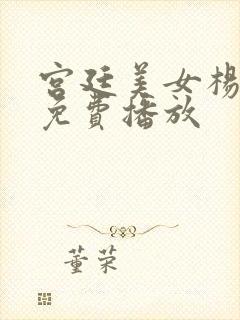 宫廷美女杨
免费播放
董荣